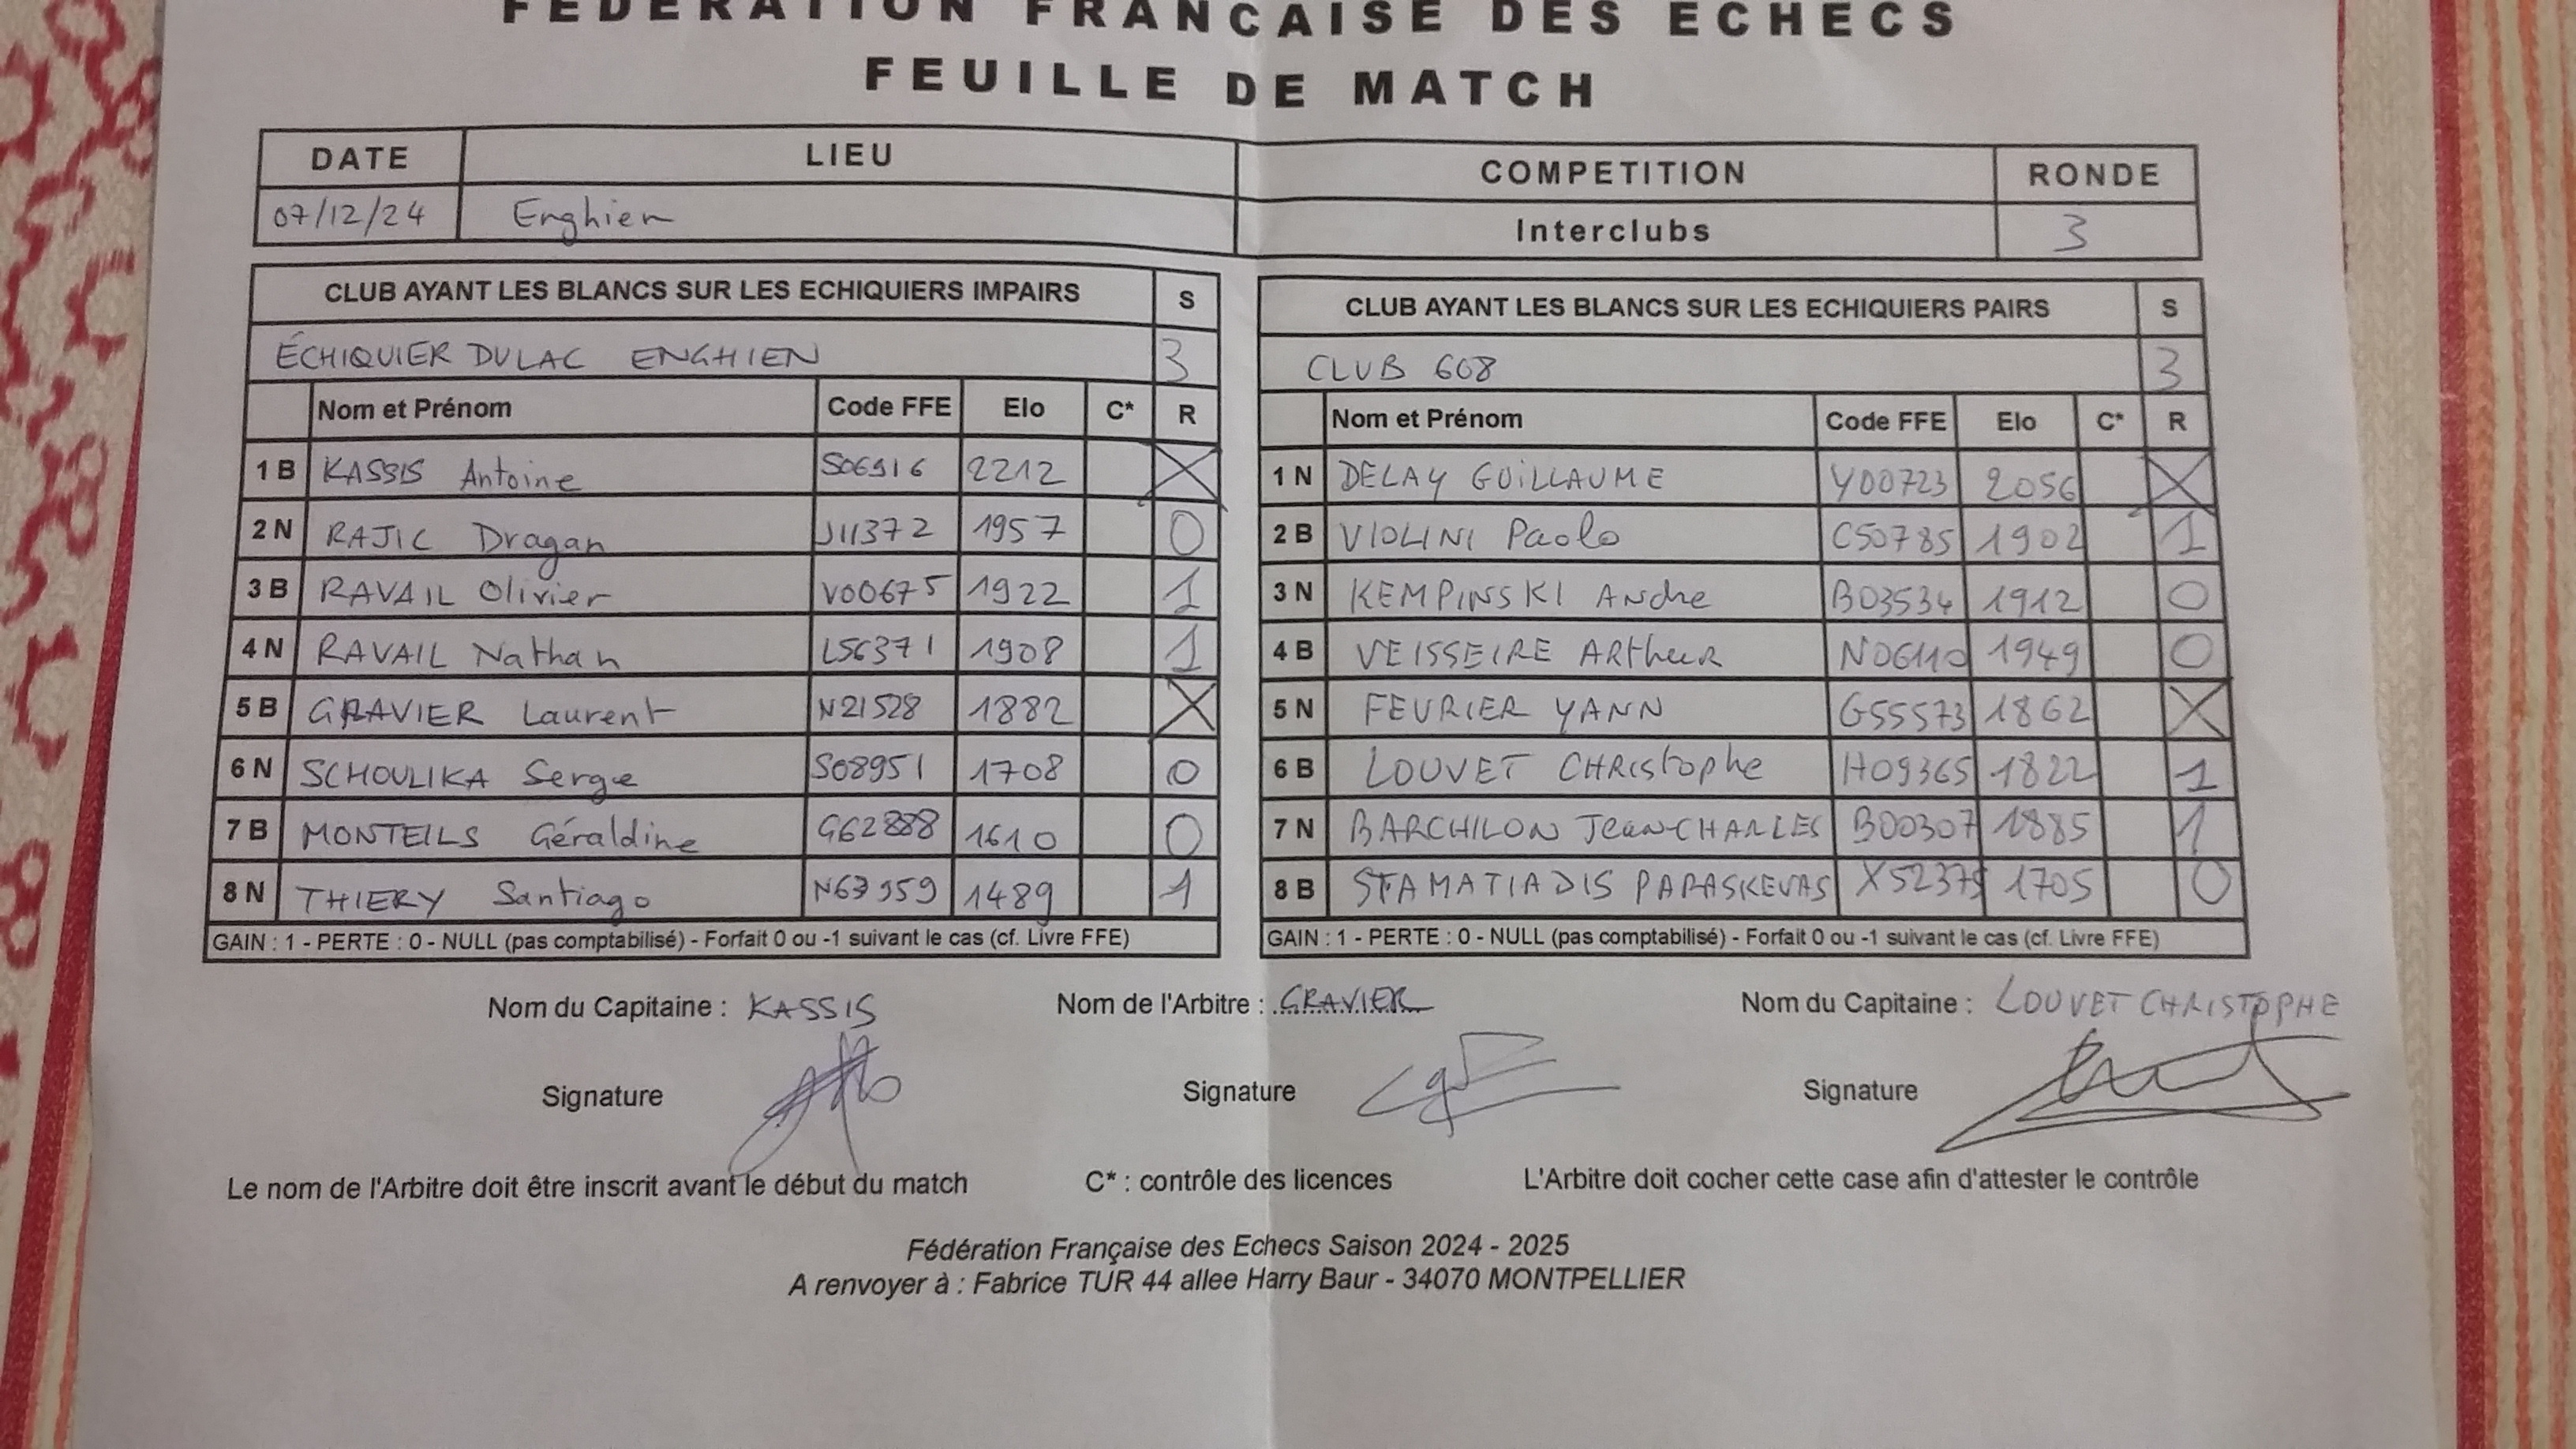 FEDERATION FRANCAISE DES ECHECS
FEUILLE DE MATCH
DATE LIEU COMPETITION RONDE
07/12/24 Enghien Interclubs 3
CLUB AYANT LES BLANCS SUR LES ECHIQUIERS IMPAIRS S
ÉCHIQUIER DU LAC ENGHIEN 3
Nom et Prénom Code FFE Elo C* R
1 B KASSIS Antoine S06916 2212 X
2 N RAJIC Dragan J11372 1957 0
3 B RAVAIL Olivier V00675 1922 1
4 N RAVAIL Nathan L56371 1908 1
5 B GRAVIER Laurent N21528 1882 X
6 N SCHOULIKA Serge S08951 1708 0
7 B MONTEILS Géraldine G62888 1610 0
8 N THIERY Santiago 1489 1
GAIN : 1 - PERTE : 0 - NULL (pas comptabilisé) - Forfait 0 ou -1 suivant le cas (cf. Livre FFE)
CLUB AYANT LES BLANCS SUR LES ECHIQUIERS PAIRS S
CLUB 608 3
Nom et Prénom Code FFE Elo C* R
1 N DELAY GUILLAUME Y00723 2056 X
2 B VIOLINI Paolo C50785 1902 1
3 N KEMPINSKI Andre B03534 1912 0
4 B VEISSEIRE ARthur N06110 1949 0
5 N FEVRIER YANN G55573 1862 X
6 B LOUVET CHRistophe H09365 1822 1
7 N BARCHILON Jean-CHARLES B00307 1885 1
8 B STAMATIADIS PARASKEVAS X52375 1705 0
GAIN : 1 - PERTE : 0 - NULL (pas comptabilisé) - Forfait 0 ou -1 suivant le cas (cf. Livre FFE)
Nom du Capitaine : KASSIS Nom de l'Arbitre : GRAVIER Nom du Capitaine : LOUVET CHRISTOPHE
Signature Signature Signature
Le nom de l'Arbitre doit être inscrit avant le début du match C* : contrôle des licences L'Arbitre doit cocher cette case afin d'attester le contrôle
Fédération Française des Echecs Saison 2024 - 2025
A renvoyer à : Fabrice TUR 44 allee Harry Baur - 34070 MONTPELLIER